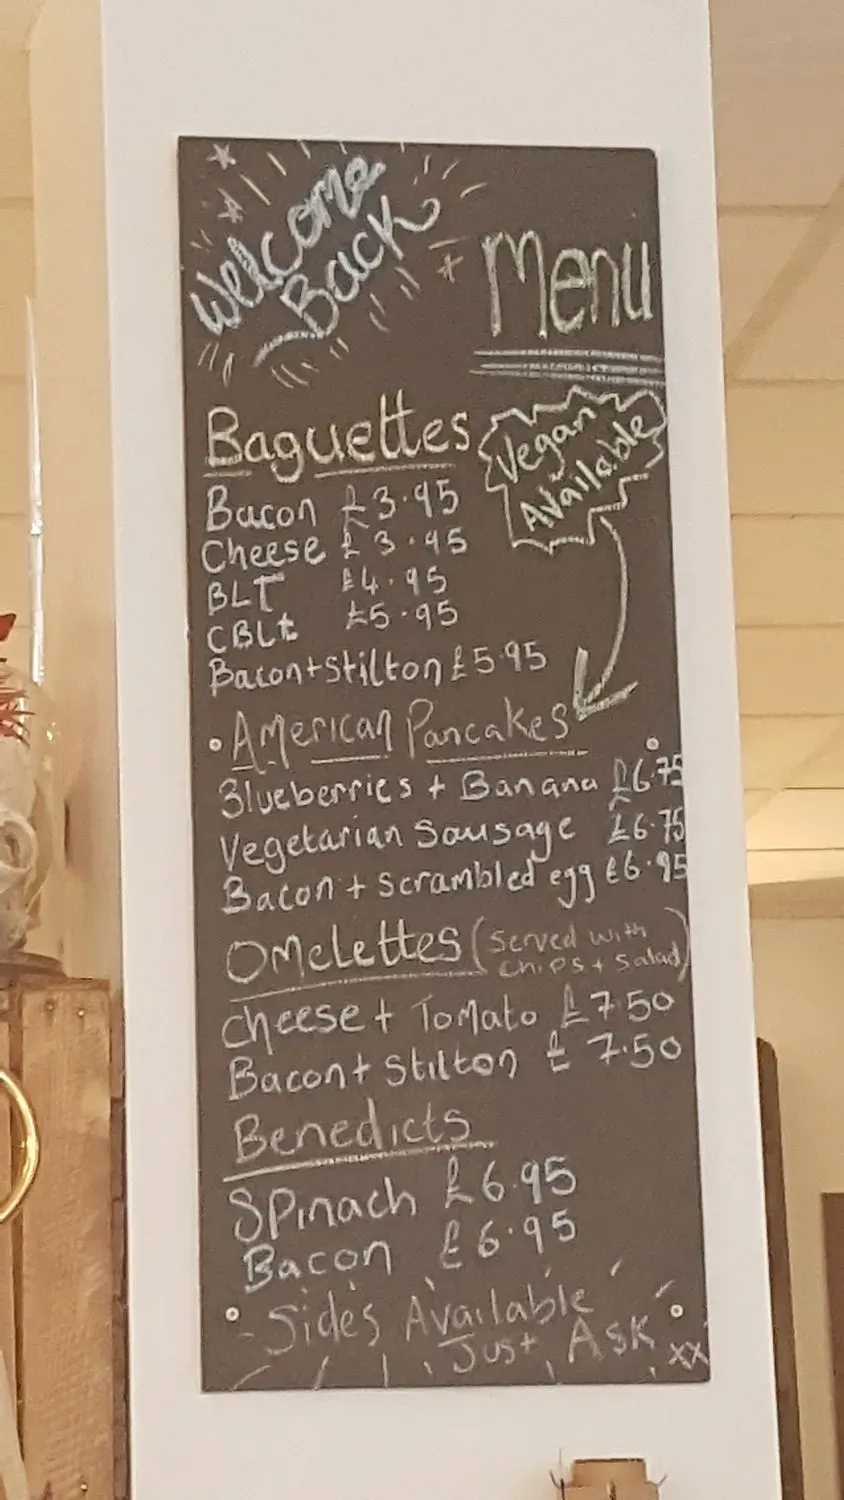 Welcome
Back
Menu
Baguettes
Vegan
Available
Bacon £3.95
Cheese £3.95
BLT £4.95
CBLt £5.95
Bacon+Stilton £5.95
American Pancakes
Blueberries + Banana £6.75
Vegetarian Sausage £6.75
Bacon + Scrambled egg £6.95
Omelettes (Served with
chips + salad)
Cheese + Tomato £7.50
Bacon + Stilton £7.50
Benedicts
Spinach £6.95
Bacon £6.95
Sides Available
Just Ask xx